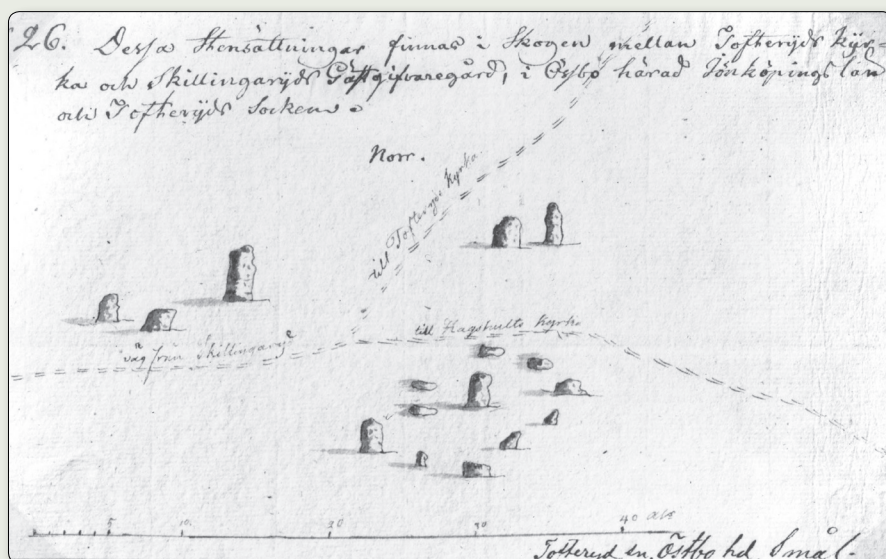 26. Dessa Stensättningar finnas i Skogen mellan Tofteryds Kyr-
ka och Skillingaryds Gästgifvaregård, i Östbo härad Jönköpings län
och Tofteryds Socken.
Norr.
till Tofteryds Kyrka
till Hagshults Kyrka
väg från Skillingaryd
5 10. 20 30 40 aln
Tofteryd sn, Östbo hd Smål